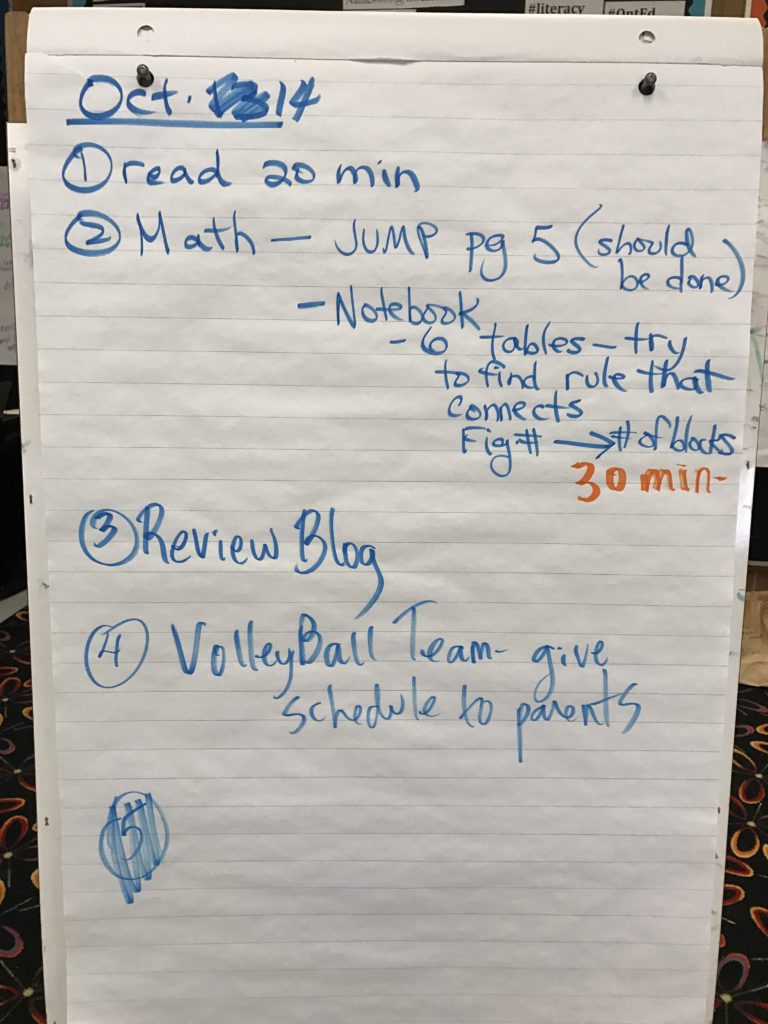 #literacy
#OntEd
Oct. 14
① read 20 min
② Math — JUMP pg 5 (should
be done)
- Notebook
- 6 tables - try
to find rule that
connects
Fig # → # of blocks
30 min-
③ Review Blog
④ VolleyBall Team- give
schedule to parents
⑤